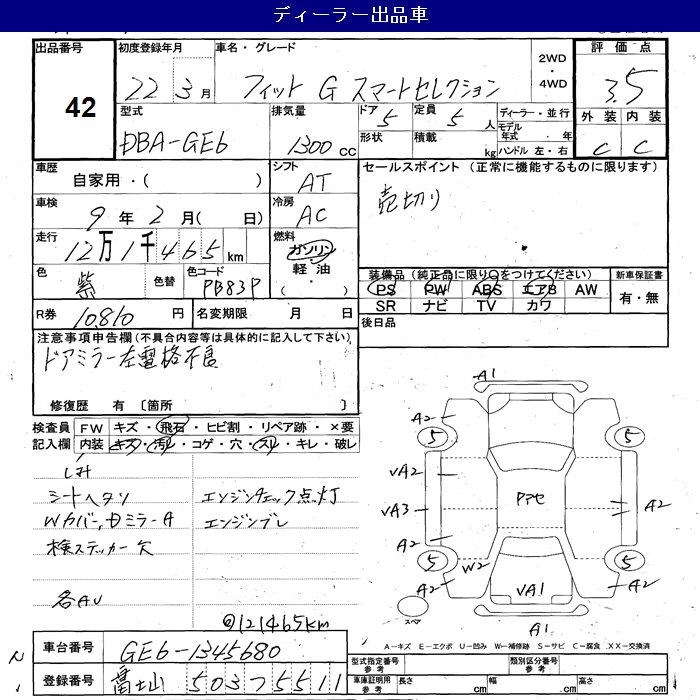 ディーラー出品車
出品番号 初度登録年月 車名・グレード 2WD・4WD 評価点
42 22 3月 フィット G スマートセレクション 3.5
型式 排気量 ドア 5 定員 5人 ディーラー・並行 外装 内装
DBA-GE6 1300cc 形状 積載 kg モデル年式 ・ 年 C C
ハンドル 左・右
車歴 シフト セールスポイント (正常に機能するものに限ります)
自家用・( ) AT 売切り
車検 冷房
9年 2月( 日) AC
走行 燃料
12万1千465km ガソリン・軽油・( )
装備品 (純正品に限り○をつけてください) 新車保証書
色 紫 色替 色コード PB83P PS PW ABS エアB AW 有・無
SR ナビ TV カワ
R券 10,810円 名変期限 月 日 後日品
注意事項申告欄(不具合内容等は具体的に記入して下さい)
ドアミラー左電格不良
修復歴 有 〔箇所 〕
検査員 FW キズ・飛石・ヒビ割・リペア跡・×要
記入欄 内装 キズ・汚れ・コゲ・穴・スレ・キレ・破レ
シミ
シートヘタリ エンジンチェック点灯
Wカバー,Dミラー A エンジンブレ
検ステッカー欠
各AU
@121465km
A1
A2
5 5
VA2
Pアセ
VA3 A2
A2
5 W2 5
A2 VA1 A2
スペア A1
A−キズ E−エクボ U−凹み W−補修跡 S−サビ C−腐食 XX−交換済
車台番号 GE6-1345680 型式指定番号 参考 類別区分番号 参考
登録番号 富士山 503 ラ 5511 車庫証明用 参考 長さ cm 幅 cm 高さ cm